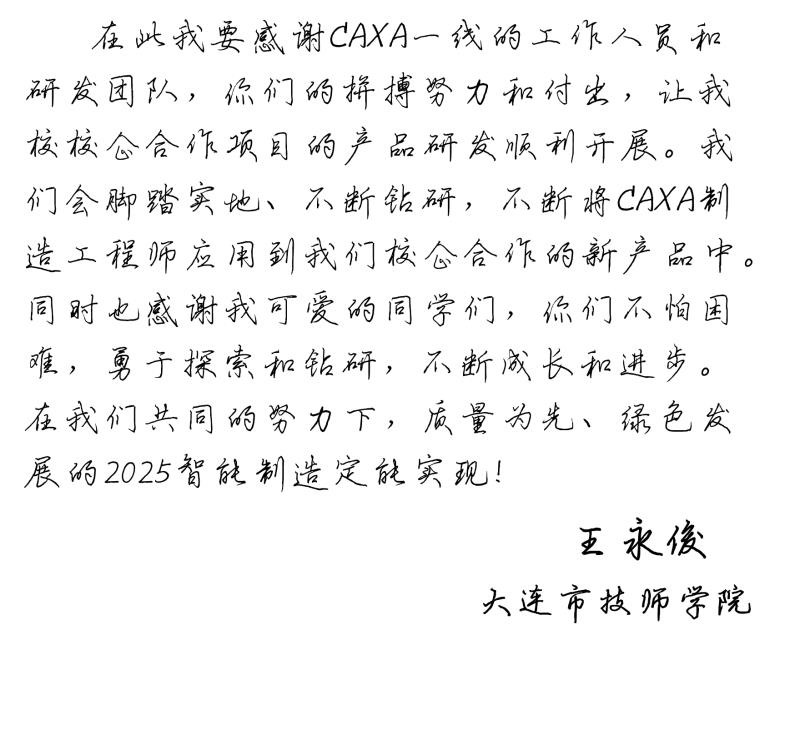 在此我要感谢CAXA一线的工作人员和
研发团队，你们的拼搏努力和付出，让我
校校企合作项目的产品研发顺利开展。我
们会脚踏实地、不断钻研，不断将CAXA制
造工程师应用到我们校企合作的新产品中。
同时也感谢我可爱的同学们，你们不怕困
难，勇于探索和钻研，不断成长和进步。
在我们共同的努力下，质量为先、绿色发
展的2025智能制造定能实现！
王永俊
大连市技师学院